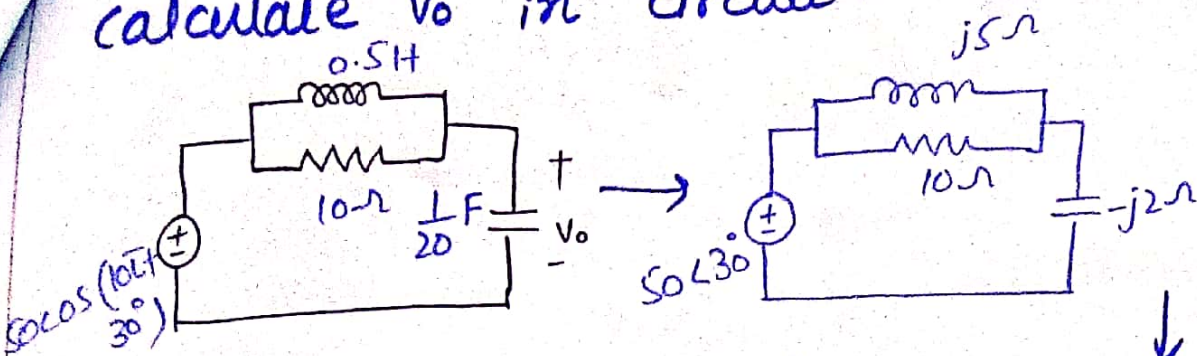 calculate Vo in
0.5H
10Ω
1/20 F
+
Vo
-
50cos(10t+
30°)
j5Ω
10Ω
-j2Ω
50<30°